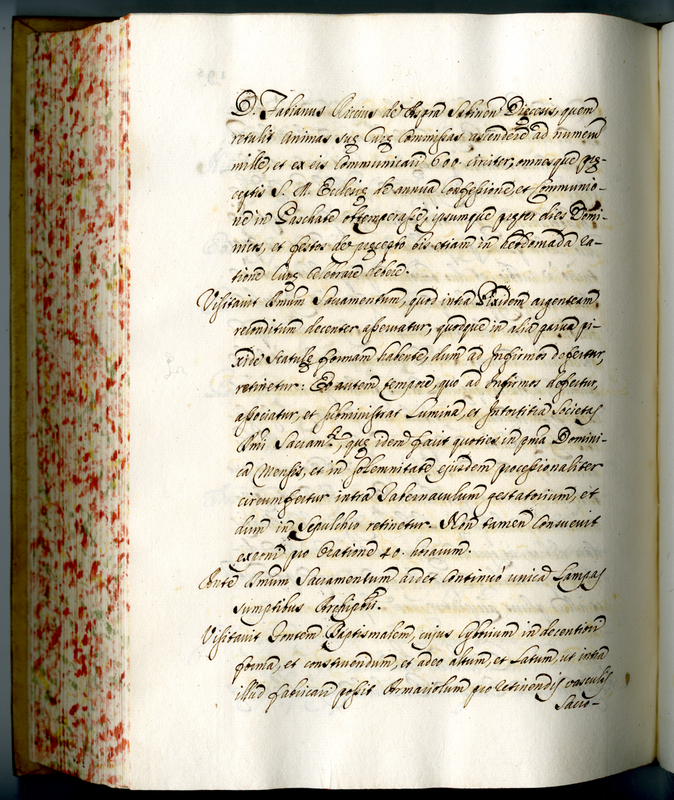 D. Fabianus Riccius de Aspra Sabinen Dięcesis, quem
retulit animas suę Curę Commissas ascendere ad numerũ
mille, et ex eis Communicari 600 circiter, omnesque prę
ceptis S. M. Ecclesię de annua Confessione, et Communio-
ne in Paschate obtemperasse, ipsumque pręter dies Domi-
nicos, et festos de pręcepto bis etiam in hebdomada ra-
tione Curę celebrare debere.
Visitavit Smum Sacramentum, quod intra Pixidem argenteam
reconditum decenter asservatur, quodque in alia parva pi-
xide scatulę formam habente, dum ad Infirmos defertur,
retinetur: Eo autem tempore, quo ad Infirmos defertur,
associatur, et subministrat Lumina, et Intortitia Societas
Smi Sacramti, quę idem facit quoties in pma Domini-
ca Mensis, et in solemnitate ejusdem processionaliter
circumfertur intra Tabernaculum gestatorium, et
dum in Sepulchro retinetur. Non tamen Consuevit
exponi pro Oratione 40. horarum.
Ante Smum Sacramentum ardet continuò unica Lampas
sumptibus Archipbri.
Visitavit Fontem Baptismalem, cujus Cyborium in decentiori
forma, et construendum, et adeo altum, et Latum, ut intra
illud fabricari possit Armariolum pro retinendis vasculis
Sacro-